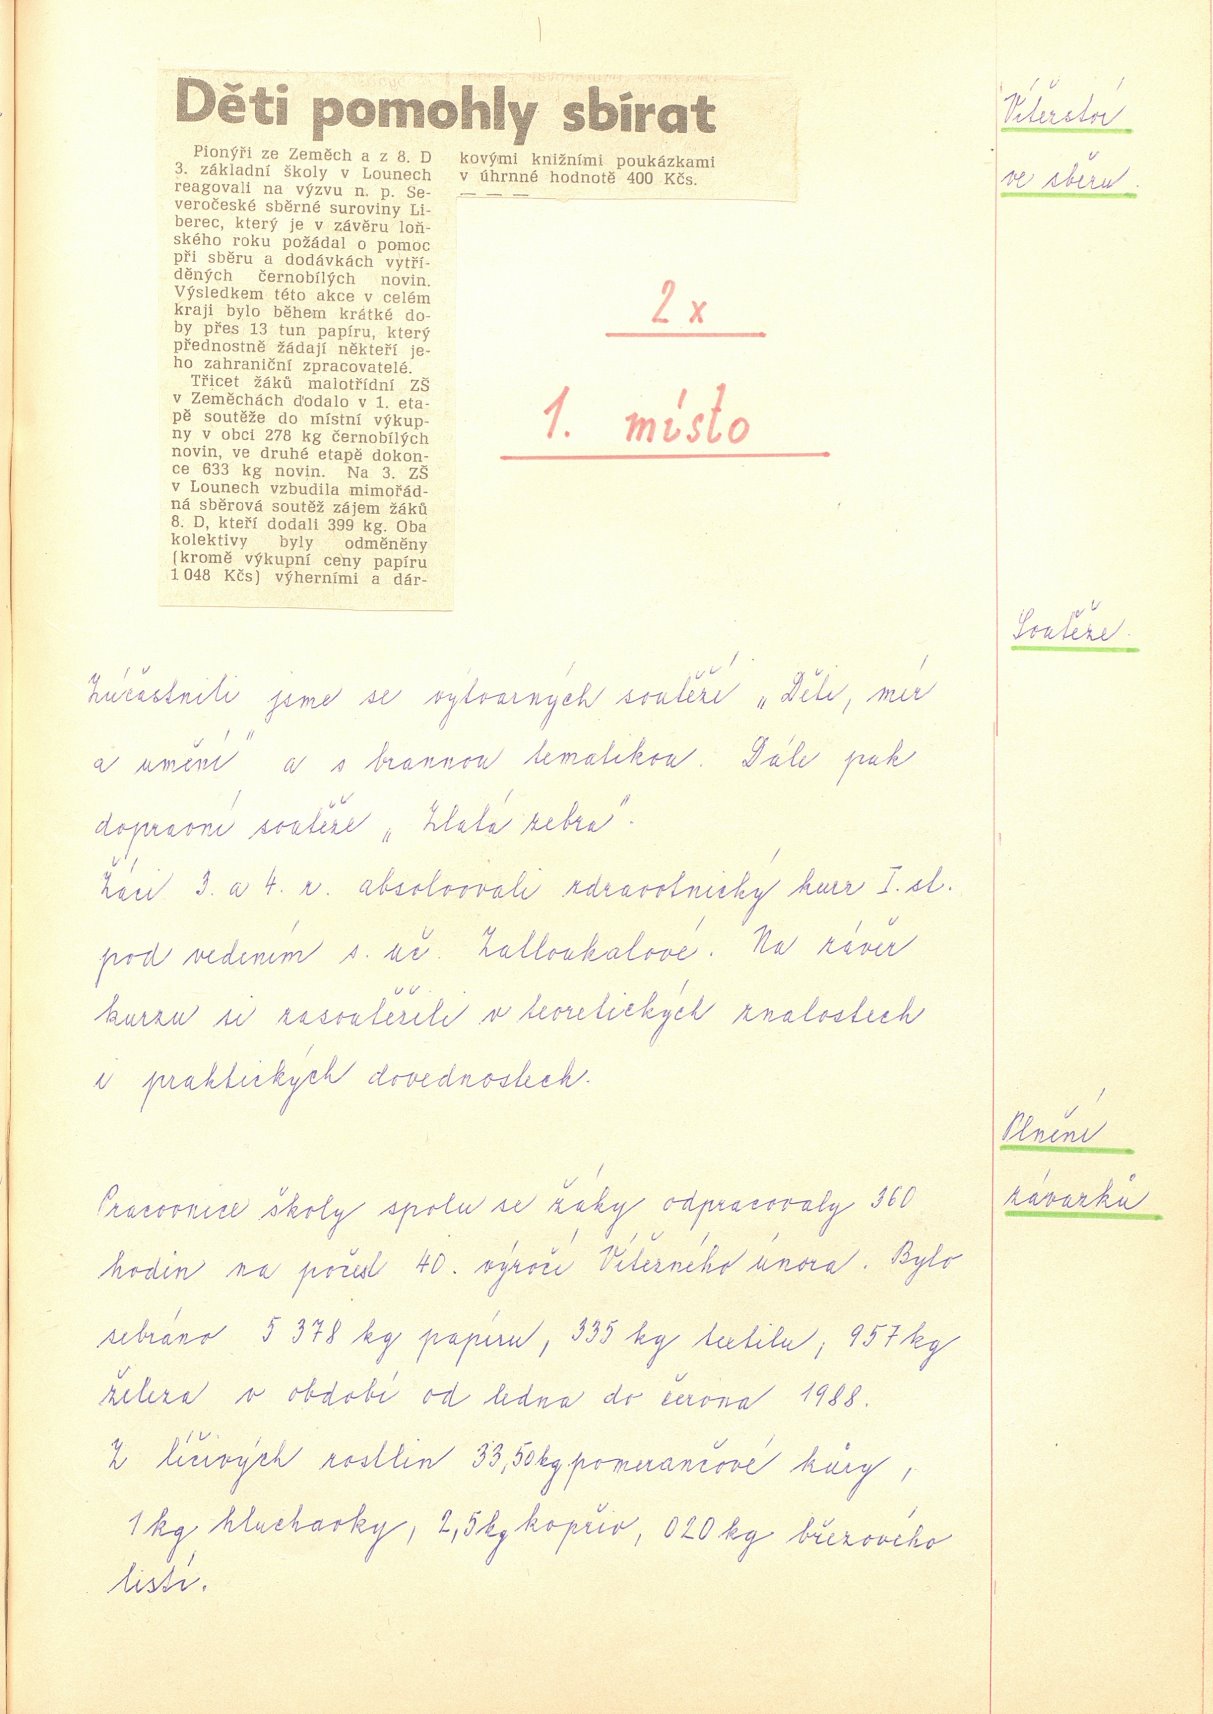 Děti pomohly sbírat
Pionýři ze Zeměch a z 8. D
3. základní školy v Lounech
reagovali na výzvu n. p. Se-
veročeské sběrné suroviny Li-
berec, který je v závěru loň-
ského roku požádal o pomoc
při sběru a dodávkách vytří-
děných černobílých novin.
Výsledkem této akce v celém
kraji bylo během krátké do-
by přes 13 tun papíru, který
přednostně žádají někteří je-
ho zahraniční zpracovatelé.
Třicet žáků malotřídní ZŠ
v Zeměchách ďodalo v 1. eta-
pě soutěže do místní výkup-
ny v obci 278 kg černobílých
novin, ve druhé etapě dokon-
ce 633 kg novin. Na 3. ZŠ
v Lounech vzbudila mimořád-
ná sběrová soutěž zájem žáků
8. D, kteří dodali 399 kg. Oba
kolektivy byly odměněny
(kromě výkupní ceny papíru
1 048 Kčs) výherními a dár-
kovými knižními poukázkami
v úhrnné hodnotě 400 Kčs.
— — —
Vítězství
ve sběru.
2 x
1. místo
Soutěže.
Zúčastnili jsme se výtvarných soutěží „Děti, mír
a umění" a s brannou tematikou. Dále pak
dopravní soutěže „Zlatá zebra".
Žáci 3. a 4. r. absolvovali zdravotnický kurz I. st.
pod vedením s. uč. Zatloukalové. Na závěr
kurzu si zasoutěžili v teoretických znalostech
i praktických dovednostech.
Plnění
závazků
Pracovnice školy spolu se žáky odpracovaly 360
hodin na počest 40. výročí Vítězného února. Bylo
sebráno 5 378 kg papíru, 335 kg textilu, 957 kg
železa v období od ledna do června 1988.
Z léčivých rostlin 33,50 kg pomerančové kůry,
1 kg hluchavky, 2,5 kg kopřiv, 020 kg březového
listí.